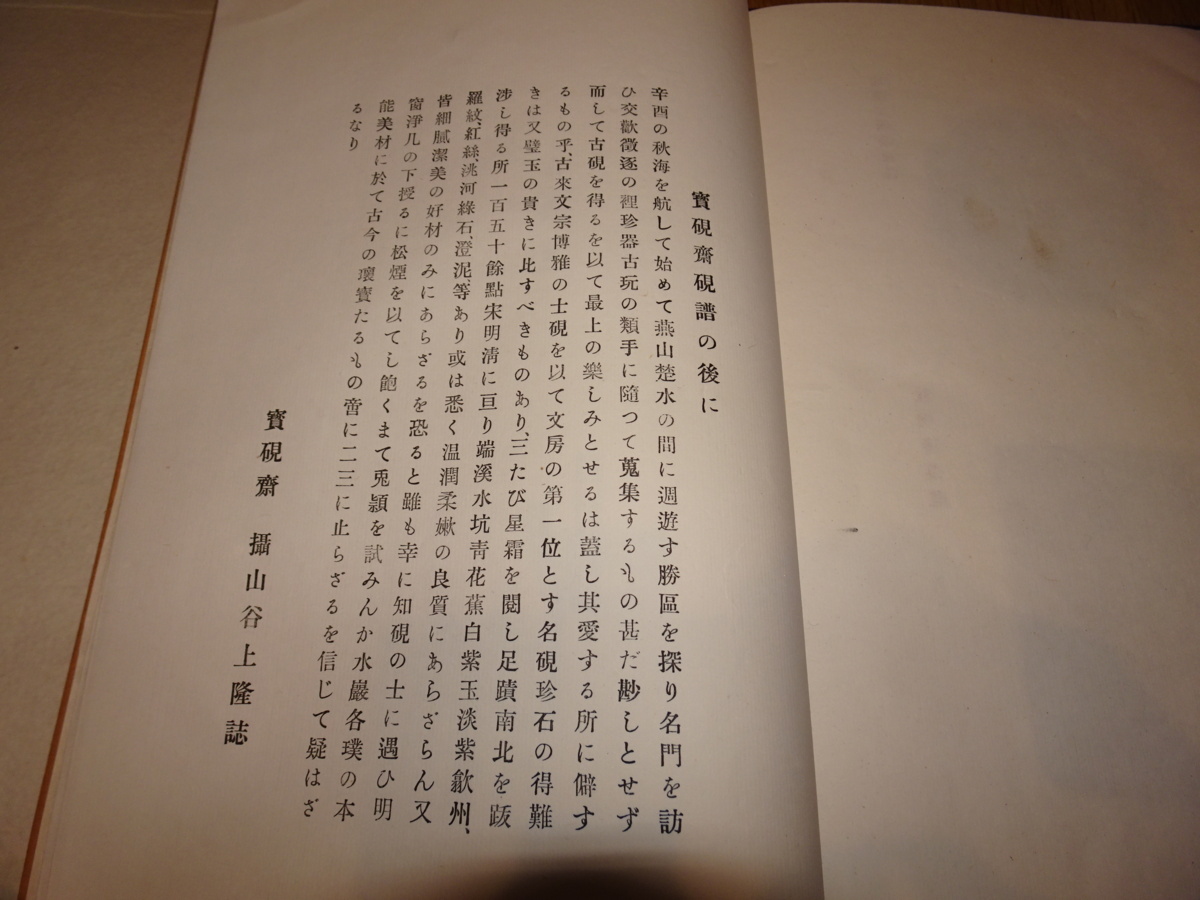 寳硯齋硯譜の後に
辛酉の秋海を航して始めて燕山楚水の間に週遊す勝區を探り名門を訪
ひ交歡徵逐の裡珍器古玩の類手に隨つて蒐集するもの甚だ尠しとせず
而して古硯を得るを以て最上の樂しみとせるは蓋し其愛する所に僻す
るもの乎、古來文宗博雅の士硯を以て文房の第一位とす名硯珍石の得難
きは又璧玉の貴きに比すべきものあり、三たび星霜を閱し足蹟南北を跋
涉し得る所一百五十餘點宋明淸に亘り端溪水坑靑花蕉白紫玉淡紫歙州、
羅紋、紅絲、洮河綠石、澄泥、等あり或は悉く温潤柔嫰の良質にあらざらん又
皆細膩潔美の好材のみにあらざるを恐ると雖も幸に知硯の士に遇ひ明
窗淨几の下授るに松煙を以てし飽くまて兎頴を試みんか水巖各璞の本
能美材に於て古今の瓌寳たるもの啻に二三に止らざるを信じて疑はざ
るなり
寳硯齋 攝山谷上隆誌